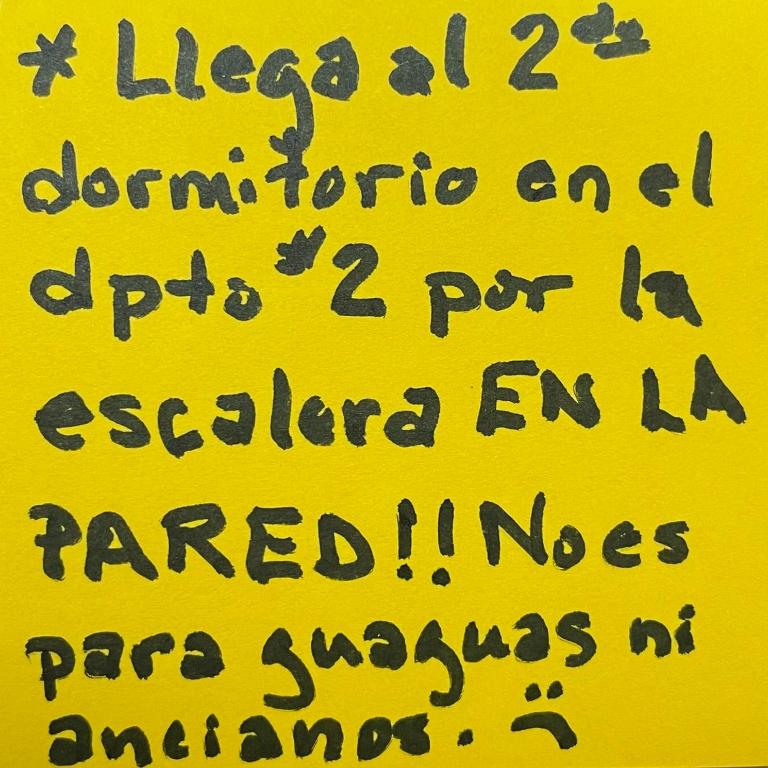 * Llega al 2do
dormitorio en el
dpto #2 por la
escalera EN LA
PARED!! No es
para guaguas ni
ancianos. :(